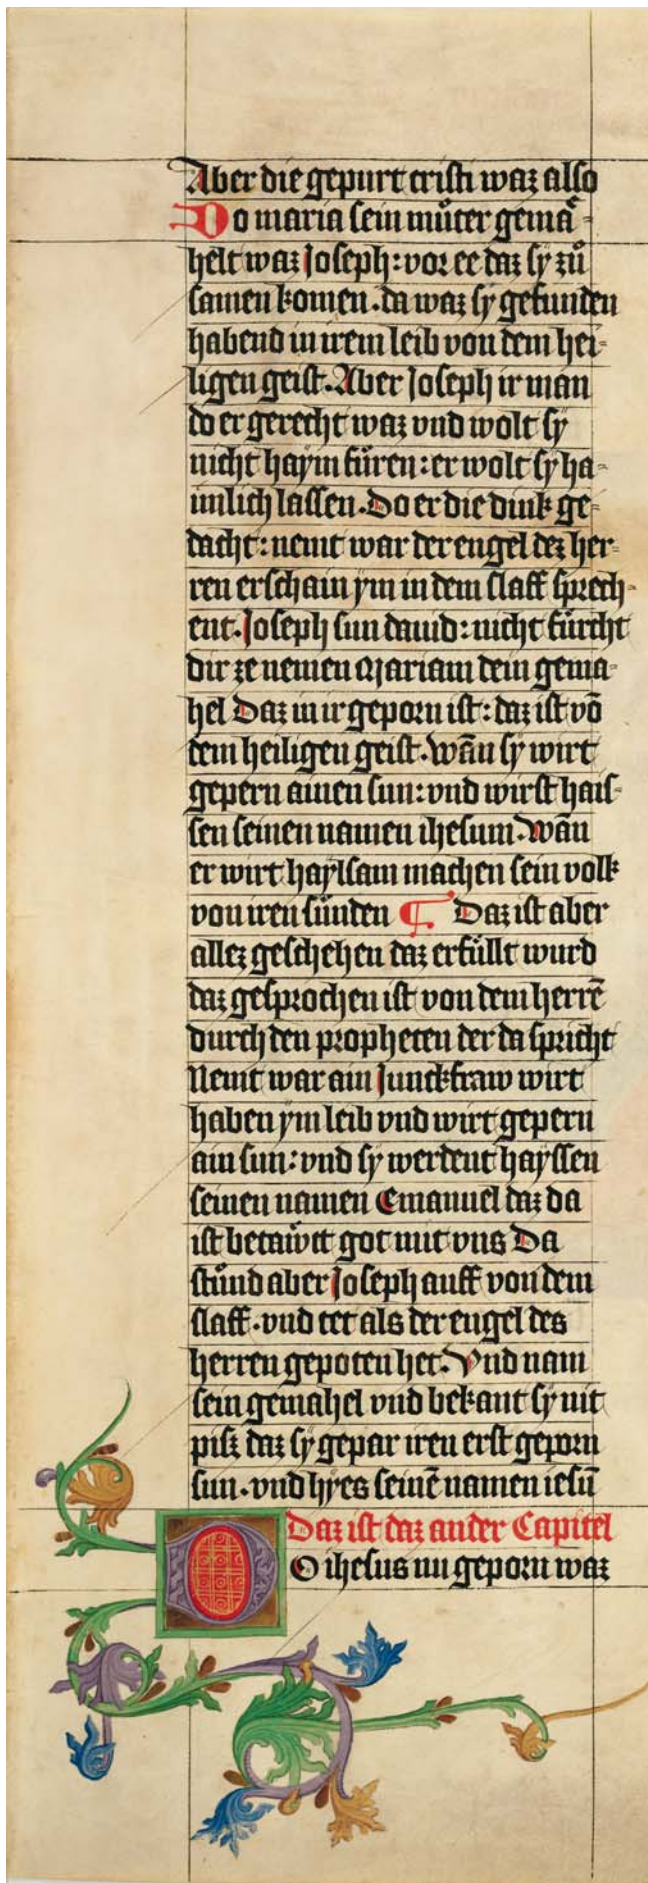 Aber die gepurt cristi waz also
Do maria sein můter gemä-
helt waz Joseph: vor ee daz sÿ zů
samen komen. da waz sÿ gefunden
habend in irem leib von dem hei-
ligen geist. Aber Joseph ir man
do er gerecht waz vnd wolt sÿ
nicht haÿm fůren: er wolt sÿ ha-
imlich lassen. Do er die dink ge-
dacht: nemt war der engel dez her-
ren erschain ÿm in dem slaff sprech-
ent. Joseph sun dauid: nicht fürcht
dir ze nemen Mariam dein gema-
hel Daz in ir geporn ist: daz ist vō
dem heiligen geist. Wān sÿ wirt
gepern ainen sun: vnd wirst hais-
sen seinen namen ihesum. Wān
er wirt haÿlsam machen sein volk
von iren sünden ¶ Daz ist aber
allez geschehen daz erfüllt wurd
daz gesprochen ist von dem herrē
durch den propheten der da spricht
Nemt war ain Junckfraw wirt
haben ÿm leib vnd wirt gepern
ain sun: vnd sÿ werdent haÿssen
seinen namen Emanuel daz da
ist betäwtt got mit vns Da
stůnd aber Joseph auff von dem
slaff. vnd tet als der engel des
herren gepoten het. Vnd nam
sein gemahel vnd bekant sÿ nit
pisz daz sÿ gepar iren erst geporn
sun. vnd hÿes seinē namen iesū
Daz ist daz ander Capitel
DO ihesus nu geporn waz